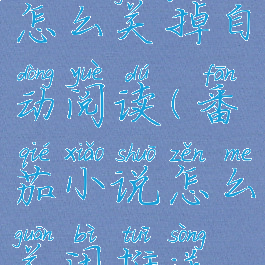 怎么关掉自
dòng yuè dú fān
动阅读(番
qié xiǎo shuō zěn me
茄小说怎么
guān bì tuī sòng
关闭推送